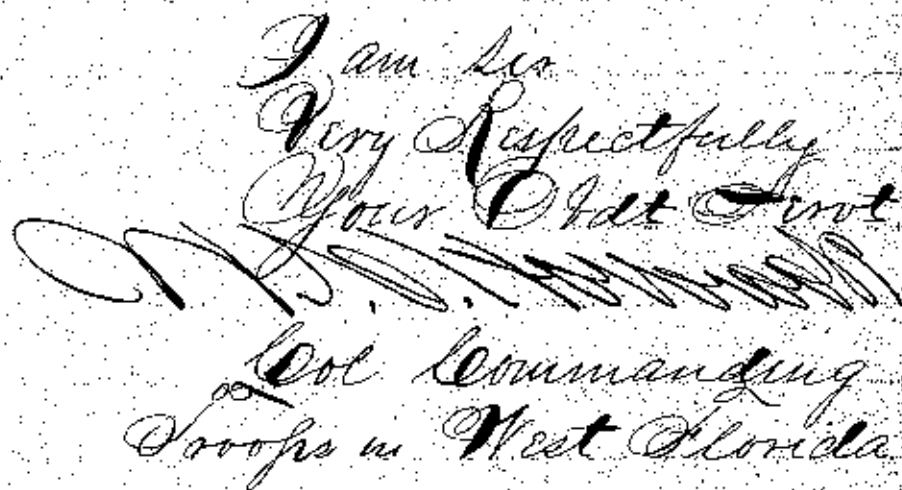 I am Sir
Very Respectfully
Your Obdt Servt
Col Commanding
Troops in West Florida